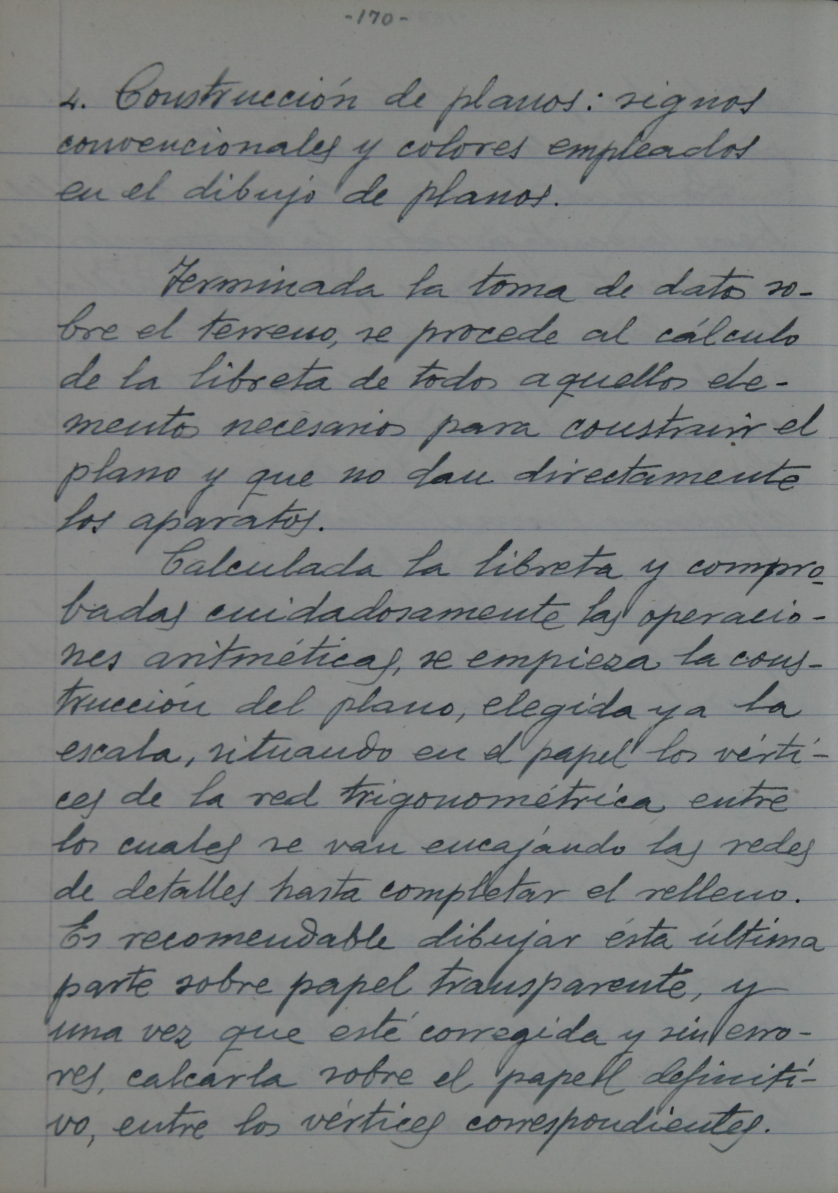 -170-
4. Construcción de planos: signos
convencionales y colores empleados
en el dibujo de planos.
Terminada la toma de datos so-
bre el terreno, se procede al cálculo
de la libreta de todos aquellos ele-
mentos necesarios para construir el
plano y que no dan directamente
los aparatos.
Calculada la libreta y compro-
badas cuidadosamente las operacio-
nes aritméticas, se empieza la cons-
trucción del plano, elegida ya la
escala, situando en el papel los vérti-
ces de la red trigonométrica entre
los cuales se van encajando las redes
de detalles hasta completar el relleno.
Es recomendable dibujar ésta última
parte sobre papel transparente, y
una vez que esté corregida y sin erro-
res, calcarla sobre el papel definiti-
vo, entre los vértices correspondientes.